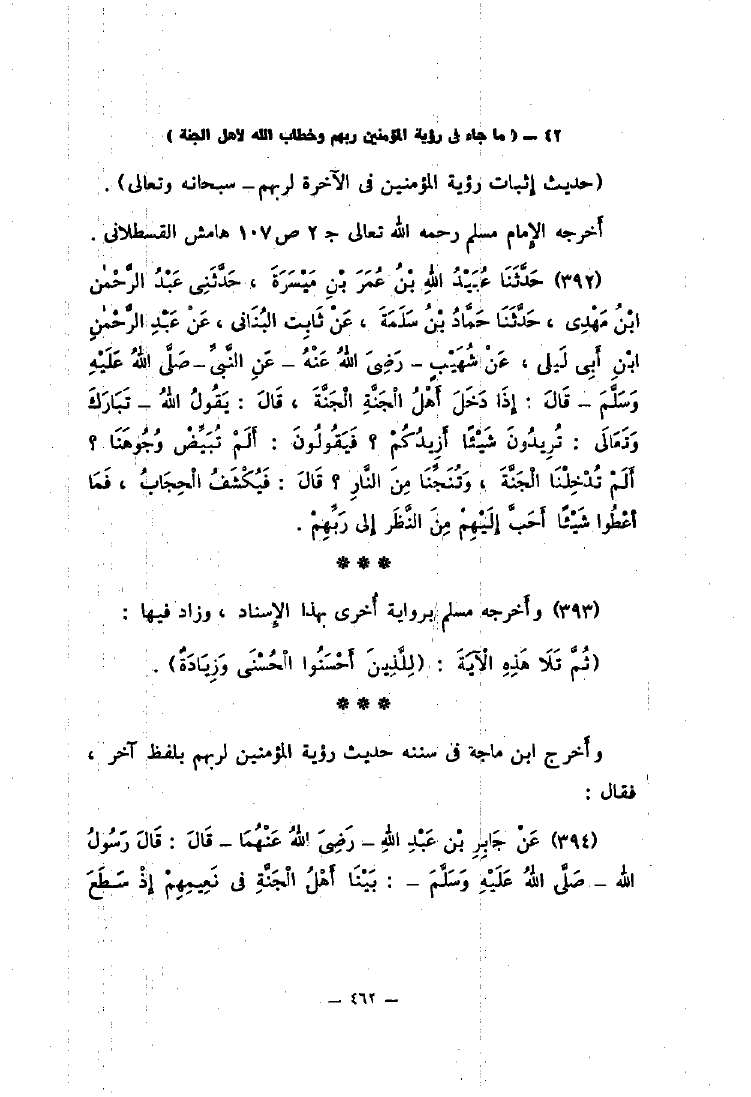 ٤٢ – ( ما جاء فى رؤية المؤمنين ربهم وخطاب الله لأهل الجنة )
(حديث إثبات رؤية المؤمنين فى الآخرة لربهم – سبحانه وتعالى) .
أخرجه الإمام مسلم رحمه الله تعالى جـ ٢ ص ١٠٧ هامش القسطلانى .
(٣٩٢) حَدَّثَنَا عُبَيْدُ اللهِ بْنُ عُمَرَ بْنِ مَيْسَرَةَ ، حَدَّثَنِى عَبْدُ الرَّحْمٰنِ
ابْنُ مَهْدِى ، حَدَّثَنَا حَمَّادُ بْنُ سَلَمَةَ ، عَنْ ثَابِتِ البُنَانِى ، عَنْ عَبْدِ الرَّحْمٰنِ
ابْنِ أَبِى لَيلى ، عَنْ صُهَيْبٍ – رَضِىَ اللهُ عَنْهُ – عَنِ النَّبِىِّ – صَلَّى اللهُ عَلَيْهِ
وَسَلَّمَ – قَالَ : إِذَا دَخَلَ أَهْلُ الْجَنَّةِ الْجَنَّةَ ، قَالَ : يَقُولُ اللهُ – تَبَارَكَ
وَتَعَالَى : تُرِيدُونَ شَيْئًا أَزِيدُكُمْ ؟ فَيَقُولُونَ : أَلَمْ تُبَيِّضْ وُجُوهَنَا ؟
أَلَمْ تُدْخِلْنَا الْجَنَّةَ ، وَتُنَجِّنَا مِنَ النَّارِ ؟ قَالَ : فَيُكْشَفُ الْحِجَابُ ، فَمَا
أُعْطُوا شَيْئًا أَحَبَّ إِلَيْهِمْ مِنَ النَّظَرِ إلى رَبِّهِمْ .
* * *
(٣٩٣) وأخرجه مسلم برواية أخرى بهذا الإسناد ، وزاد فيها :
(ثُمَّ تَلَا هَذِهِ الْآيَةَ : (لِلَّذِينَ أَحْسَنُوا الْحُسْنَى وَزِيَادَةٌ) .
* * *
وأخرج ابن ماجة فى سننه حديث رؤية المؤمنين لربهم بلفظ آخر ،
فقال :
(٣٩٤) عَنْ جَابِرِ بْنِ عَبْدِ اللهِ – رَضِىَ اللهُ عَنْهُمَا – قَالَ : قَالَ رَسُولُ
الله – صَلَّى اللهُ عَلَيْهِ وَسَلَّمَ – : بَيْنَا أَهْلُ الْجَنَّةِ فى نَعِيمِهِمْ إِذْ سَطَعَ
– ٤٦٢ –